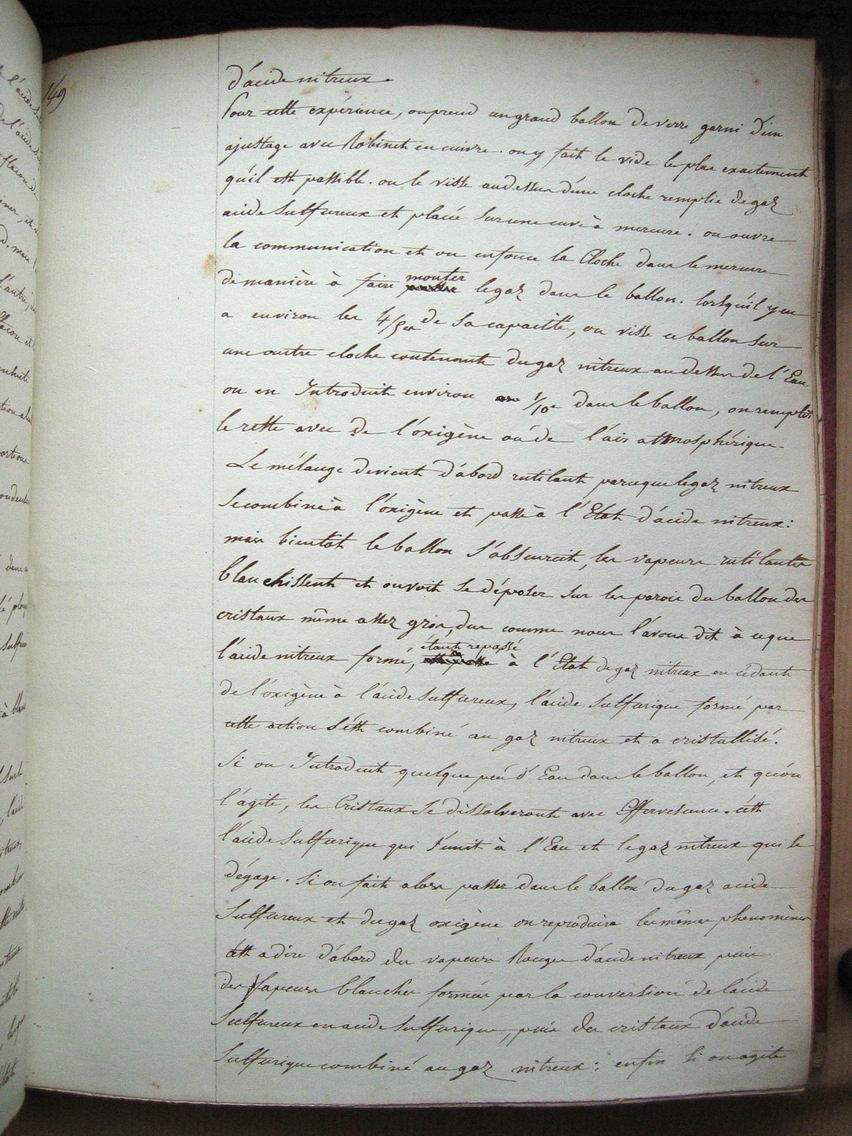 149
d'acide nitreux.
Pour cette expérience, on prend un grand ballon de verre garni d'un
ajustage avec Robinet en cuivre. on y fait le vide le plus exactement
qu'il est possible. on le visse audessus d'une cloche remplie de gaz
acide Sulfureux et placée Sur une cuve à mercure. on ouvre
la communication et on enfonce la Cloche dans le mercure
de manière à faire monter le gaz dans le ballon. lorsqu'il y en
a environ les 4/5es de Sa capacité, on visse ce ballon Sur
une autre cloche contenant du gaz nitreux au dessus de l'Eau
on en Introduit environ 1/10e dans le ballon, on remplit
le reste avec de l'oxigène ou de l'air atmosphérique.
Le mélange devient d'abord rutilant parceque le gaz nitreux
Se combine à l'oxigène et passe à l'Etat d'acide nitreux:
mais bientot le ballon S'obscurcit, les vapeurs rutilantes
blanchissent et on voit Se déposer Sur les parois du ballon des
cristaux même assez gros, dus comme nous l'avons dit à ce que
l'acide nitreux formé, étant repassé à l'Etat de gaz nitreux en cédant
de l'oxigène à l'acide Sulfureux, l'acide Sulfurique formé par
cette action S'est combiné au gaz nitreux et a cristallisé.
Si on Introduit quelque peu d'Eau dans le ballon, et qu'on
l'agite, les Cristaux Se dissolveront avec Effervescence. c'est
l'acide Sulfurique qui S'unit à l'Eau et le gaz nitreux qui Se
dégage. Si on fait alors passer dans le ballon du gaz acide
Sulfureux et du gaz oxigène on reproduira les mêmes phenomènes
c'est a dire d'abord des vapeurs Rouges d'acide nitreux puis
des Vapeurs blanches formées par la conversion de l'acide
Sulfureux en acide Sulfurique, puis des cristaux d'acide
Sulfurique combiné au gaz nitreux: enfin Si on agite